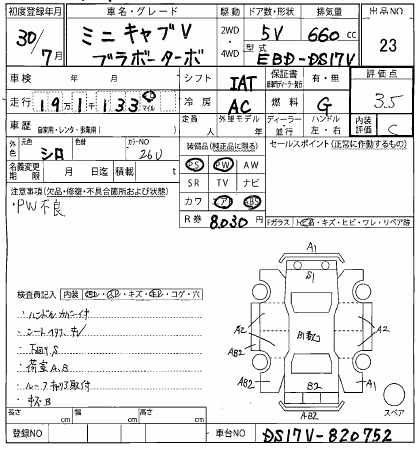 初度登録年月 車名・グレード 駆動 ドア数・形状 排気量 出品NO
30/7月 ミニキャブV 2WD・4WD 5V 660cc 23
ブラボーターボ 型式 EBD-DS17V
車検 年 月 シフト IAT 保証書 有・無 評価点
走行 マイル 冷房 AC 燃料 G 3.5
車歴 自家用・レンタ・事業用( ) 定員 人 外箱モデル年 ディーラー・並行 ハンドル 左・右 内装評価 C
外色 元色 シロ 色替 カラーNO 26U 装備品(純正品に限る) セールスポイント(正常に作動するもの)
名義変更期限 月 日迄 積載 t PS PW AW
注意事項(欠品・修復・不具合箇所および状態) SR TV ナビ
・PW不良 カワ エアB ABS
R券 8,030円 Fガラス キズ・ヒビ・ワレ・リペア跡
A1
S1
検査員記入 内装 キズ・コゲ・穴
・ハンドルカバー付
A2 A2
AB2
・荷室A,B
AB2 B2 A1
・ルーフキャリア取付
・キズB AB2 スペア
長さ cm 幅 cm 高さ cm
登録NO 車台NO DS17V-820752